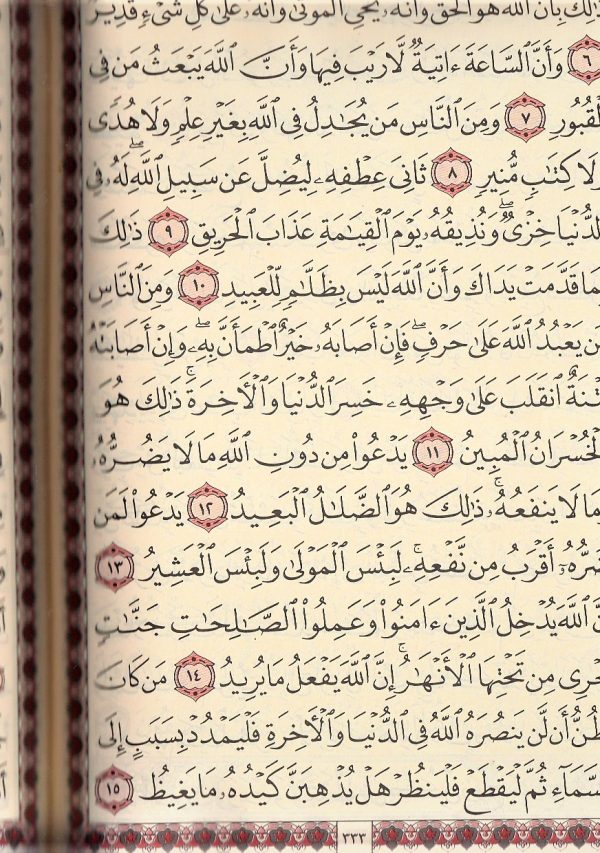 ذَٰلِكَ بِأَنَّ ٱللَّهَ هُوَ ٱلْحَقُّ وَأَنَّهُۥ يُحْيِ ٱلْمَوْتَىٰ وَأَنَّهُۥ عَلَىٰ كُلِّ شَىْءٍ قَدِيرٌ
٦ وَأَنَّ ٱلسَّاعَةَ ءَاتِيَةٌ لَّا رَيْبَ فِيهَا وَأَنَّ ٱللَّهَ يَبْعَثُ مَن فِى
ٱلْقُبُورِ ٧ وَمِنَ ٱلنَّاسِ مَن يُجَٰدِلُ فِى ٱللَّهِ بِغَيْرِ عِلْمٍ وَلَا هُدًى
وَلَا كِتَٰبٍ مُّنِيرٍ ٨ ثَانِىَ عِطْفِهِۦ لِيُضِلَّ عَن سَبِيلِ ٱللَّهِ ۖ لَهُۥ فِى
ٱلدُّنْيَا خِزْىٌ ۖ وَنُذِيقُهُۥ يَوْمَ ٱلْقِيَٰمَةِ عَذَابَ ٱلْحَرِيقِ ٩ ذَٰلِكَ
بِمَا قَدَّمَتْ يَدَاكَ وَأَنَّ ٱللَّهَ لَيْسَ بِظَلَّٰمٍ لِّلْعَبِيدِ ١٠ وَمِنَ ٱلنَّاسِ
مَن يَعْبُدُ ٱللَّهَ عَلَىٰ حَرْفٍ ۖ فَإِنْ أَصَابَهُۥ خَيْرٌ ٱطْمَأَنَّ بِهِۦ ۖ وَإِنْ أَصَابَتْهُ
فِتْنَةٌ ٱنقَلَبَ عَلَىٰ وَجْهِهِۦ خَسِرَ ٱلدُّنْيَا وَٱلْأَخِرَةَ ۚ ذَٰلِكَ هُوَ
ٱلْخُسْرَانُ ٱلْمُبِينُ ١١ يَدْعُوا۟ مِن دُونِ ٱللَّهِ مَا لَا يَضُرُّهُۥ
وَمَا لَا يَنفَعُهُۥ ۚ ذَٰلِكَ هُوَ ٱلضَّلَٰلُ ٱلْبَعِيدُ ١٢ يَدْعُوا۟ لَمَن
ضَرُّهُۥٓ أَقْرَبُ مِن نَّفْعِهِۦ ۚ لَبِئْسَ ٱلْمَوْلَىٰ وَلَبِئْسَ ٱلْعَشِيرُ ١٣
إِنَّ ٱللَّهَ يُدْخِلُ ٱلَّذِينَ ءَامَنُوا۟ وَعَمِلُوا۟ ٱلصَّٰلِحَٰتِ جَنَّٰتٍ
تَجْرِى مِن تَحْتِهَا ٱلْأَنْهَٰرُ ۚ إِنَّ ٱللَّهَ يَفْعَلُ مَا يُرِيدُ ١٤ مَن كَانَ
يَظُنُّ أَن لَّن يَنصُرَهُ ٱللَّهُ فِى ٱلدُّنْيَا وَٱلْأَخِرَةِ فَلْيَمْدُدْ بِسَبَبٍ إِلَى
ٱلسَّمَآءِ ثُمَّ لْيَقْطَعْ فَلْيَنظُرْ هَلْ يُذْهِبَنَّ كَيْدُهُۥ مَا يَغِيظُ ١٥
٣٣٣